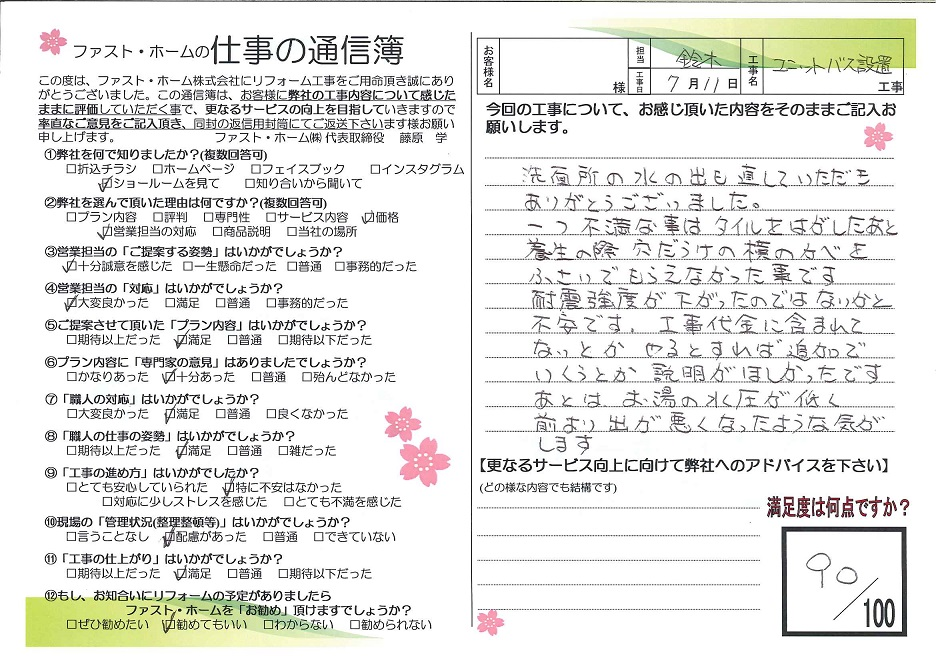 ファスト・ホームの仕事の通信簿
この度は、ファスト・ホーム株式会社にリフォーム工事をご用命頂き誠にあり
がとうございました。この通信簿は、お客様に弊社の工事内容について感じた
ままに評価していただく事で、更なるサービスの向上を目指していきますので
率直なご意見をご記入頂き、同封の返信用封筒にてご返送下さいます様お願い
申し上げます。 ファスト・ホーム㈱ 代表取締役 藤原 学
①弊社を何で知りましたか？(複数回答可)
□折込チラシ □ホームページ □フェイスブック □インスタグラム
☑ショールームを見て □知り合いから聞いて
②弊社を選んで頂いた理由は何ですか？(複数回答可)
□プラン内容 □評判 □専門性 □サービス内容 ☑価格
☑営業担当の対応 □商品説明 □当社の場所
③営業担当の「ご提案する姿勢」はいかがでしょうか？
☑十分誠意を感じた □一生懸命だった □普通 □事務的だった
④営業担当の「対応」はいかがでしょうか？
☑大変良かった □満足 □普通 □事務的だった
⑤ご提案させて頂いた「プラン内容」はいかがでしょうか？
□期待以上だった ☑満足 □普通 □期待以下だった
⑥プラン内容に「専門家の意見」はありましたでしょうか？
□かなりあった ☑十分あった □普通 □殆んどなかった
⑦「職人の対応」はいかがでしょうか？
□大変良かった ☑満足 □普通 □良くなかった
⑧「職人の仕事の姿勢」はいかがでしょうか？
□期待以上だった ☑満足 □普通 □雑だった
⑨「工事の進め方」はいかがでしたか？
□とても安心していられた ☑特に不安はなかった
□対応に少しストレスを感じた □とても不満を感じた
⑩現場の「管理状況(整理整頓等)」はいかがでしょうか？
□言うことなし ☑配慮があった □普通 □できていない
⑪「工事の仕上がり」はいかがでしょうか？
□期待以上だった ☑満足 □普通 □期待以下だった
⑫もし、お知合いにリフォームの予定がありましたら
ファスト・ホームを「お勧め」頂けますでしょうか？
□ぜひ勧めたい ☑勧めてもいい □わからない □勧められない
お客様名 様 担当 鈴木 工事日 7月11日 工事名 ユニットバス設置 工事
今回の工事について、お感じ頂いた内容をそのままご記入お
願いします。
洗面所の水の出も直していただき
ありがとうございました。
一つ不満な事はタイルをはがしたあと
養生の際 穴だらけの横のかべを
ふさいでもらえなかった事です
耐震強度が下がったのではないかと
不安です。工事代金に含まれて
ないとか やるとすれば追加で
いくらとか 説明がほしかったです
あとは お湯の水圧が低く
前より出が悪くなったような気が
します
【更なるサービス向上に向けて弊社へのアドバイスを下さい】
(どの様な内容でも結構です)
満足度は何点ですか？
90/100